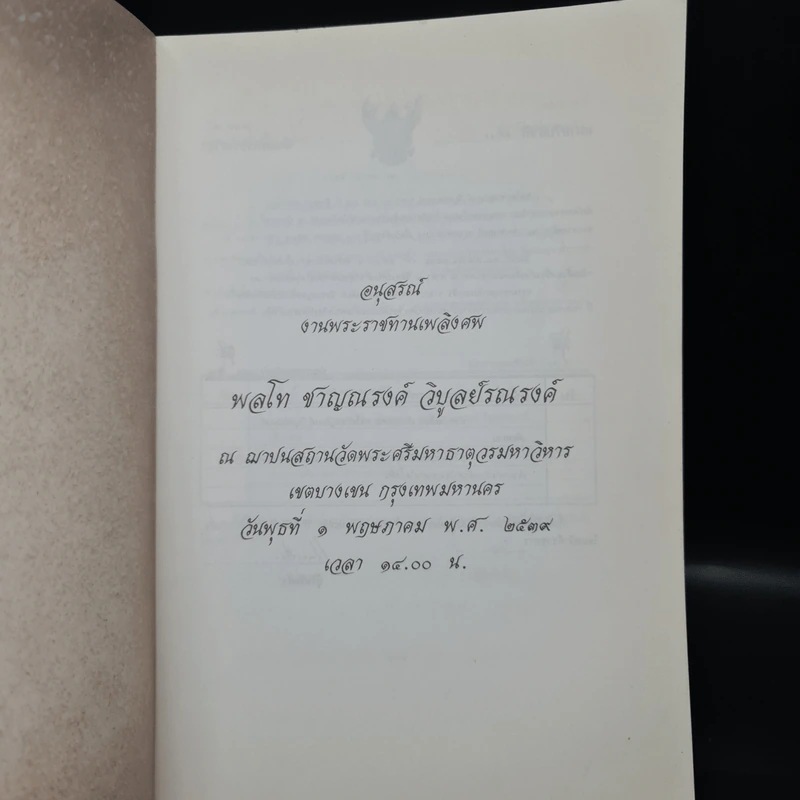 อนุสรณ์
งานพระราชทานเพลิงศพ
พลโท ชาญณรงค์ วิบูลย์รณรงค์
ณ ฌาปนสถานวัดพระศรีมหาธาตุวรมหาวิหาร
เขตบางเขน กรุงเทพมหานคร
วันพุธที่ ๑ พฤษภาคม พ.ศ. ๒๕๓๙
เวลา ๑๔.๐๐ น.